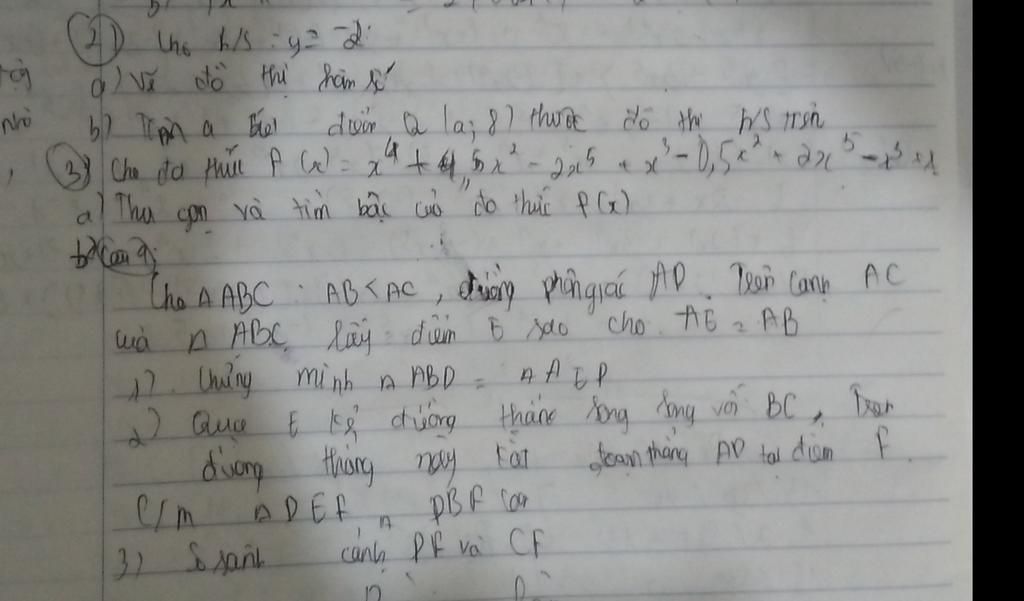 2) Cho h/s : y = -2
a) Vẽ đồ thị hàm số
b) Tìm a biết điểm Q (a; 8) thuộc đồ thị h/s trên
3) Cho đa thức P(x) = x⁴ + 4,5x² - 2x⁵ + x³ - 0,5x² + 2x⁵ - x³ + x
a) Thu gọn và tìm bậc của đa thức P(x)
b) Câu 4:
Cho Δ ABC : AB < AC, đường phân giác AD. Trên cạnh AC
của Δ ABC lấy điểm E sao cho AE = AB
1) Chứng minh Δ ABD = Δ AED
2) Qua E kẻ đường thẳng song song với BC,
đường thẳng này cắt đoạn thẳng AD tại điểm F.
C/m Δ DEF, Δ DBF cân
3) So sánh cạnh DF và CF